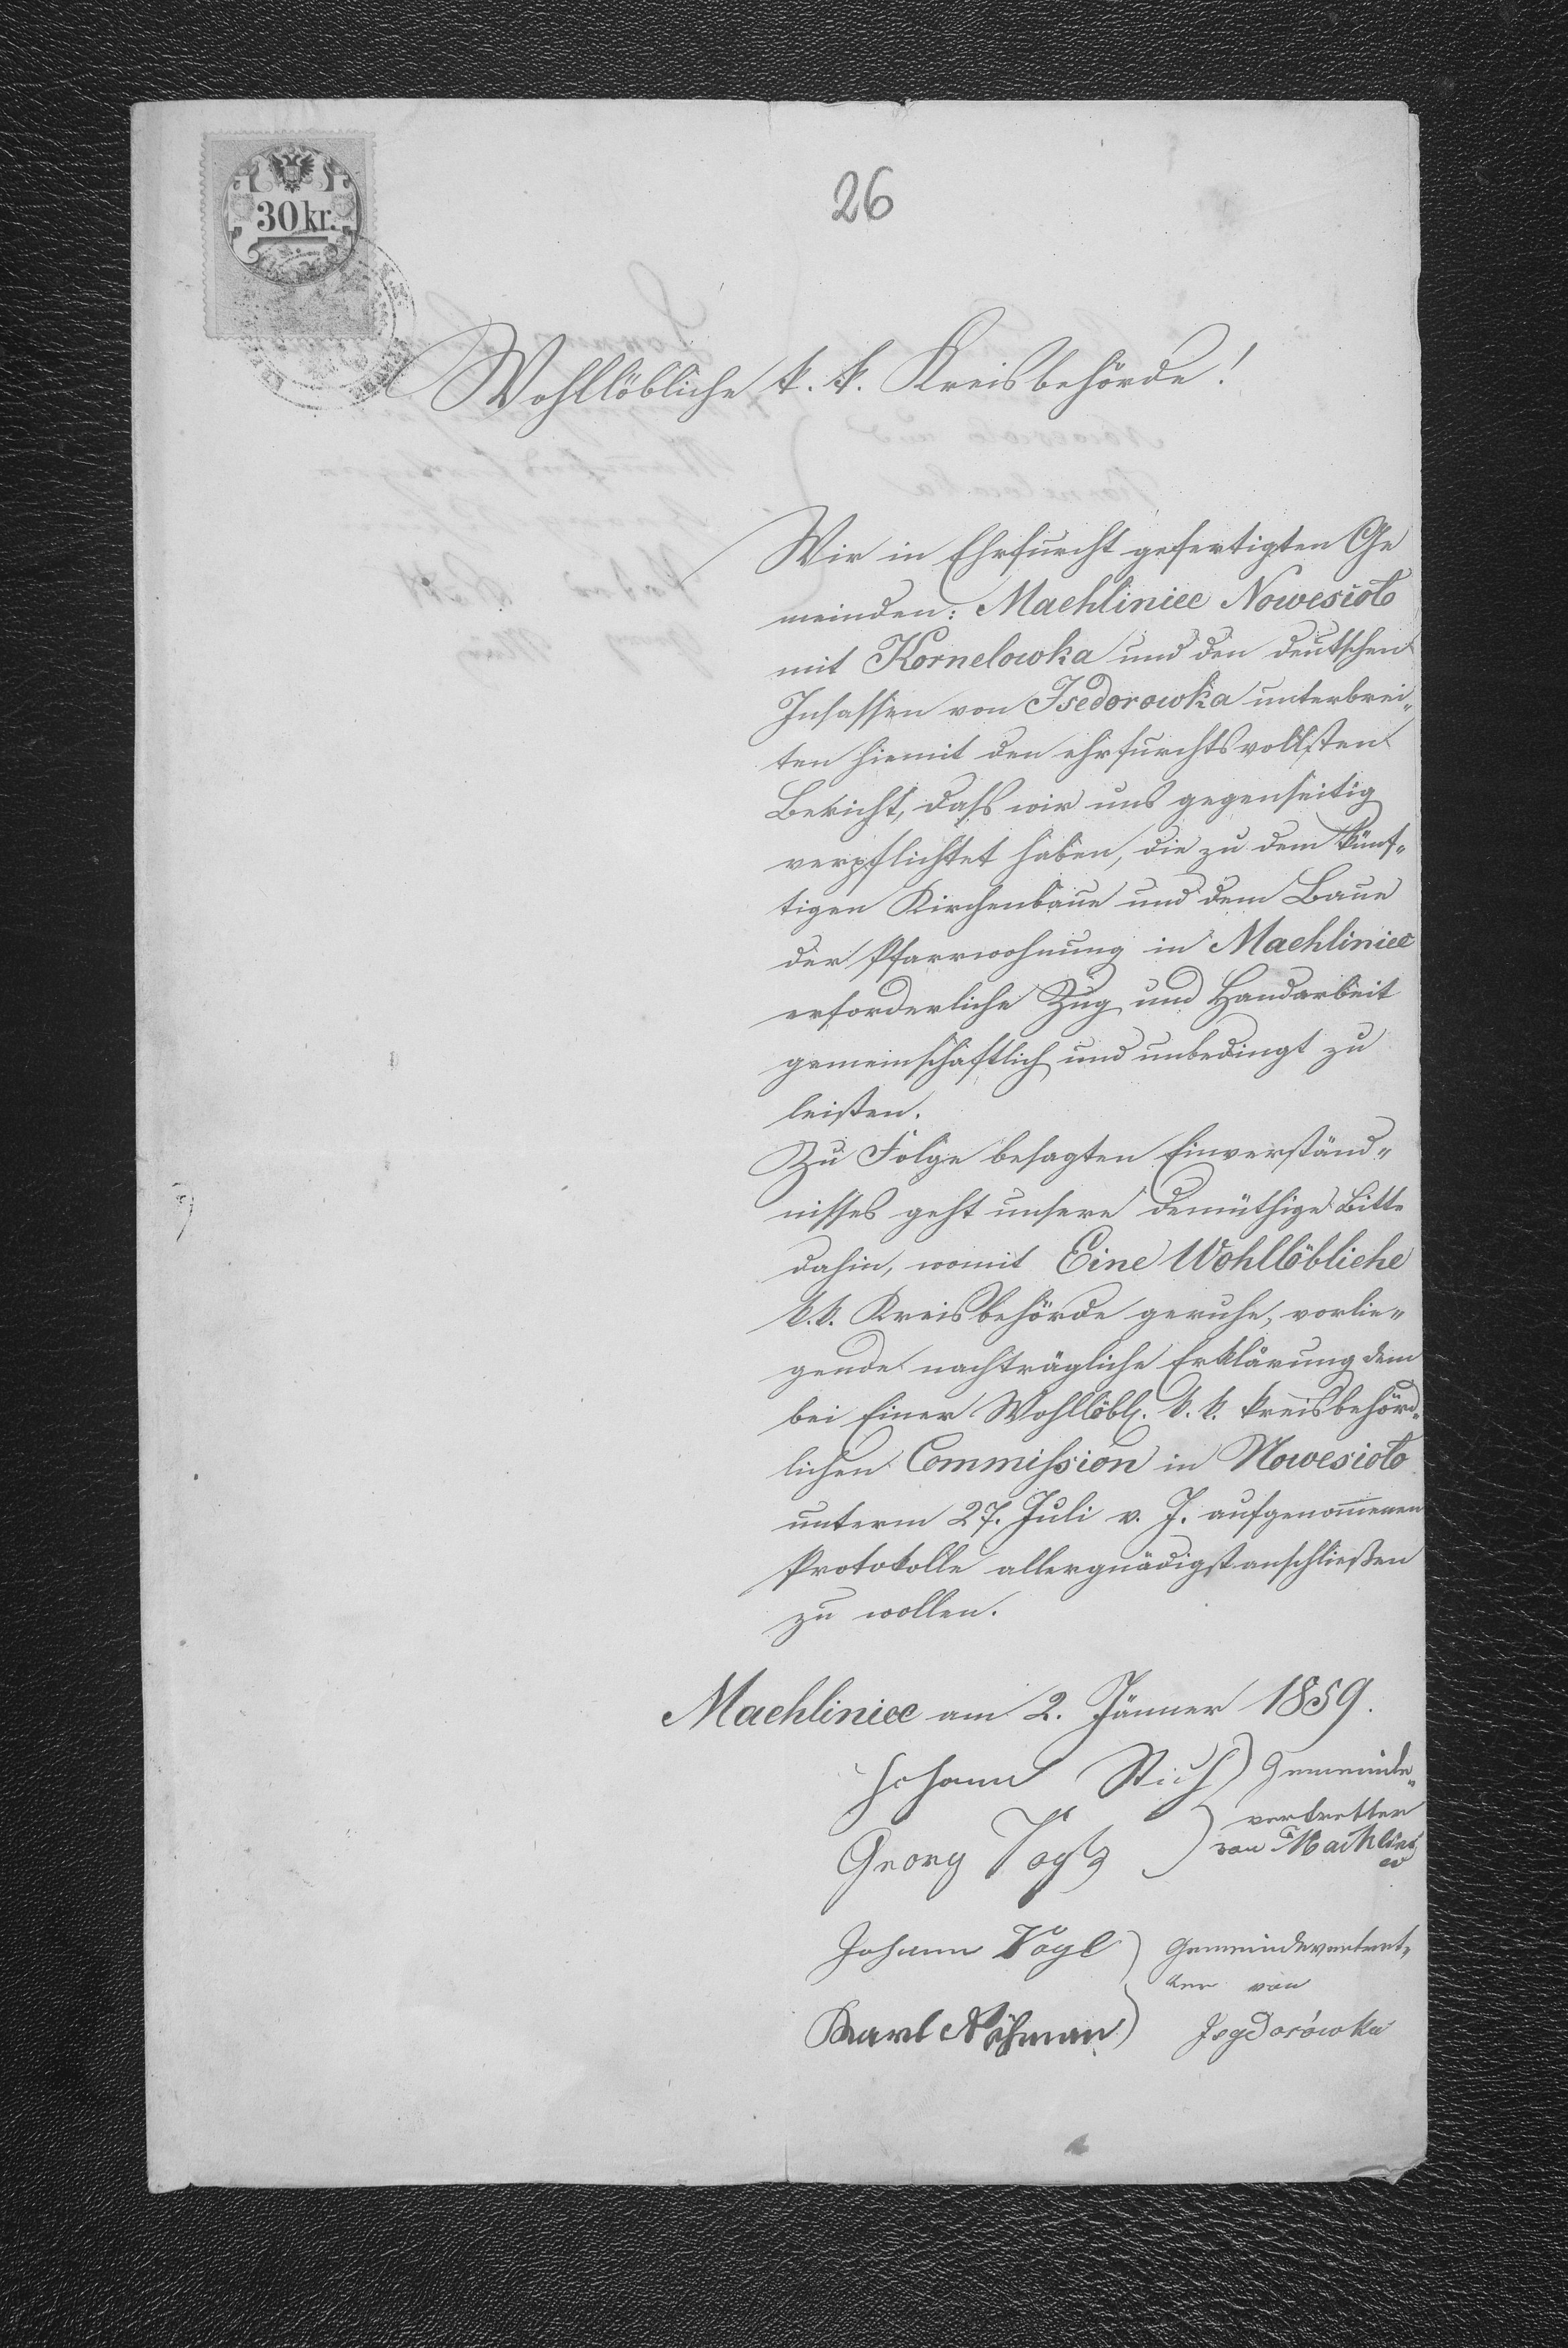 30 kr.
26
Wohllöbliche k. k. Kreisbehörde!
Wir in Ehrfurcht gefertigten Ge
meinden: Machliniec Nowesioło
mit Kornelowka und den deutschen
Insassen von Isedorowka unterbrei„
ten hiemit den ehrfurchtsvollsten
Bericht, daß wir uns gegenseitig
verpflichtet haben, die zu dem künf„
tigen Kirchenbaue und dem Baue
der Pfarrwohnung in Machliniec
erforderliche Zug und Handarbeit
gemeinschaftlich und unbedingt zu
leisten.
Zu Folge besagten Einverständ„
nisses geht unsere demüthige Bitte
dahin, womit Eine Wohllöbliche
k. k. Kreisbehörde geruhe, vorlie„
gende nachträgliche Erklärung dem
bei Einer Wohllöbl. k. k. kreisbehörd„
lichen Commission in Nowesioło
unterm 27. Juli v. J. aufgenom̄enen
Protokolle allergnädigst anschließen
zu wollen.
Machliniec am 2. Jänner 1859.
Johann Stich ) Gemeinde„
vertretter
Georg ) von Machlini
ec
Johann Vogl ) Gemeindevertret„
ter von
Karl ) Isydorówka